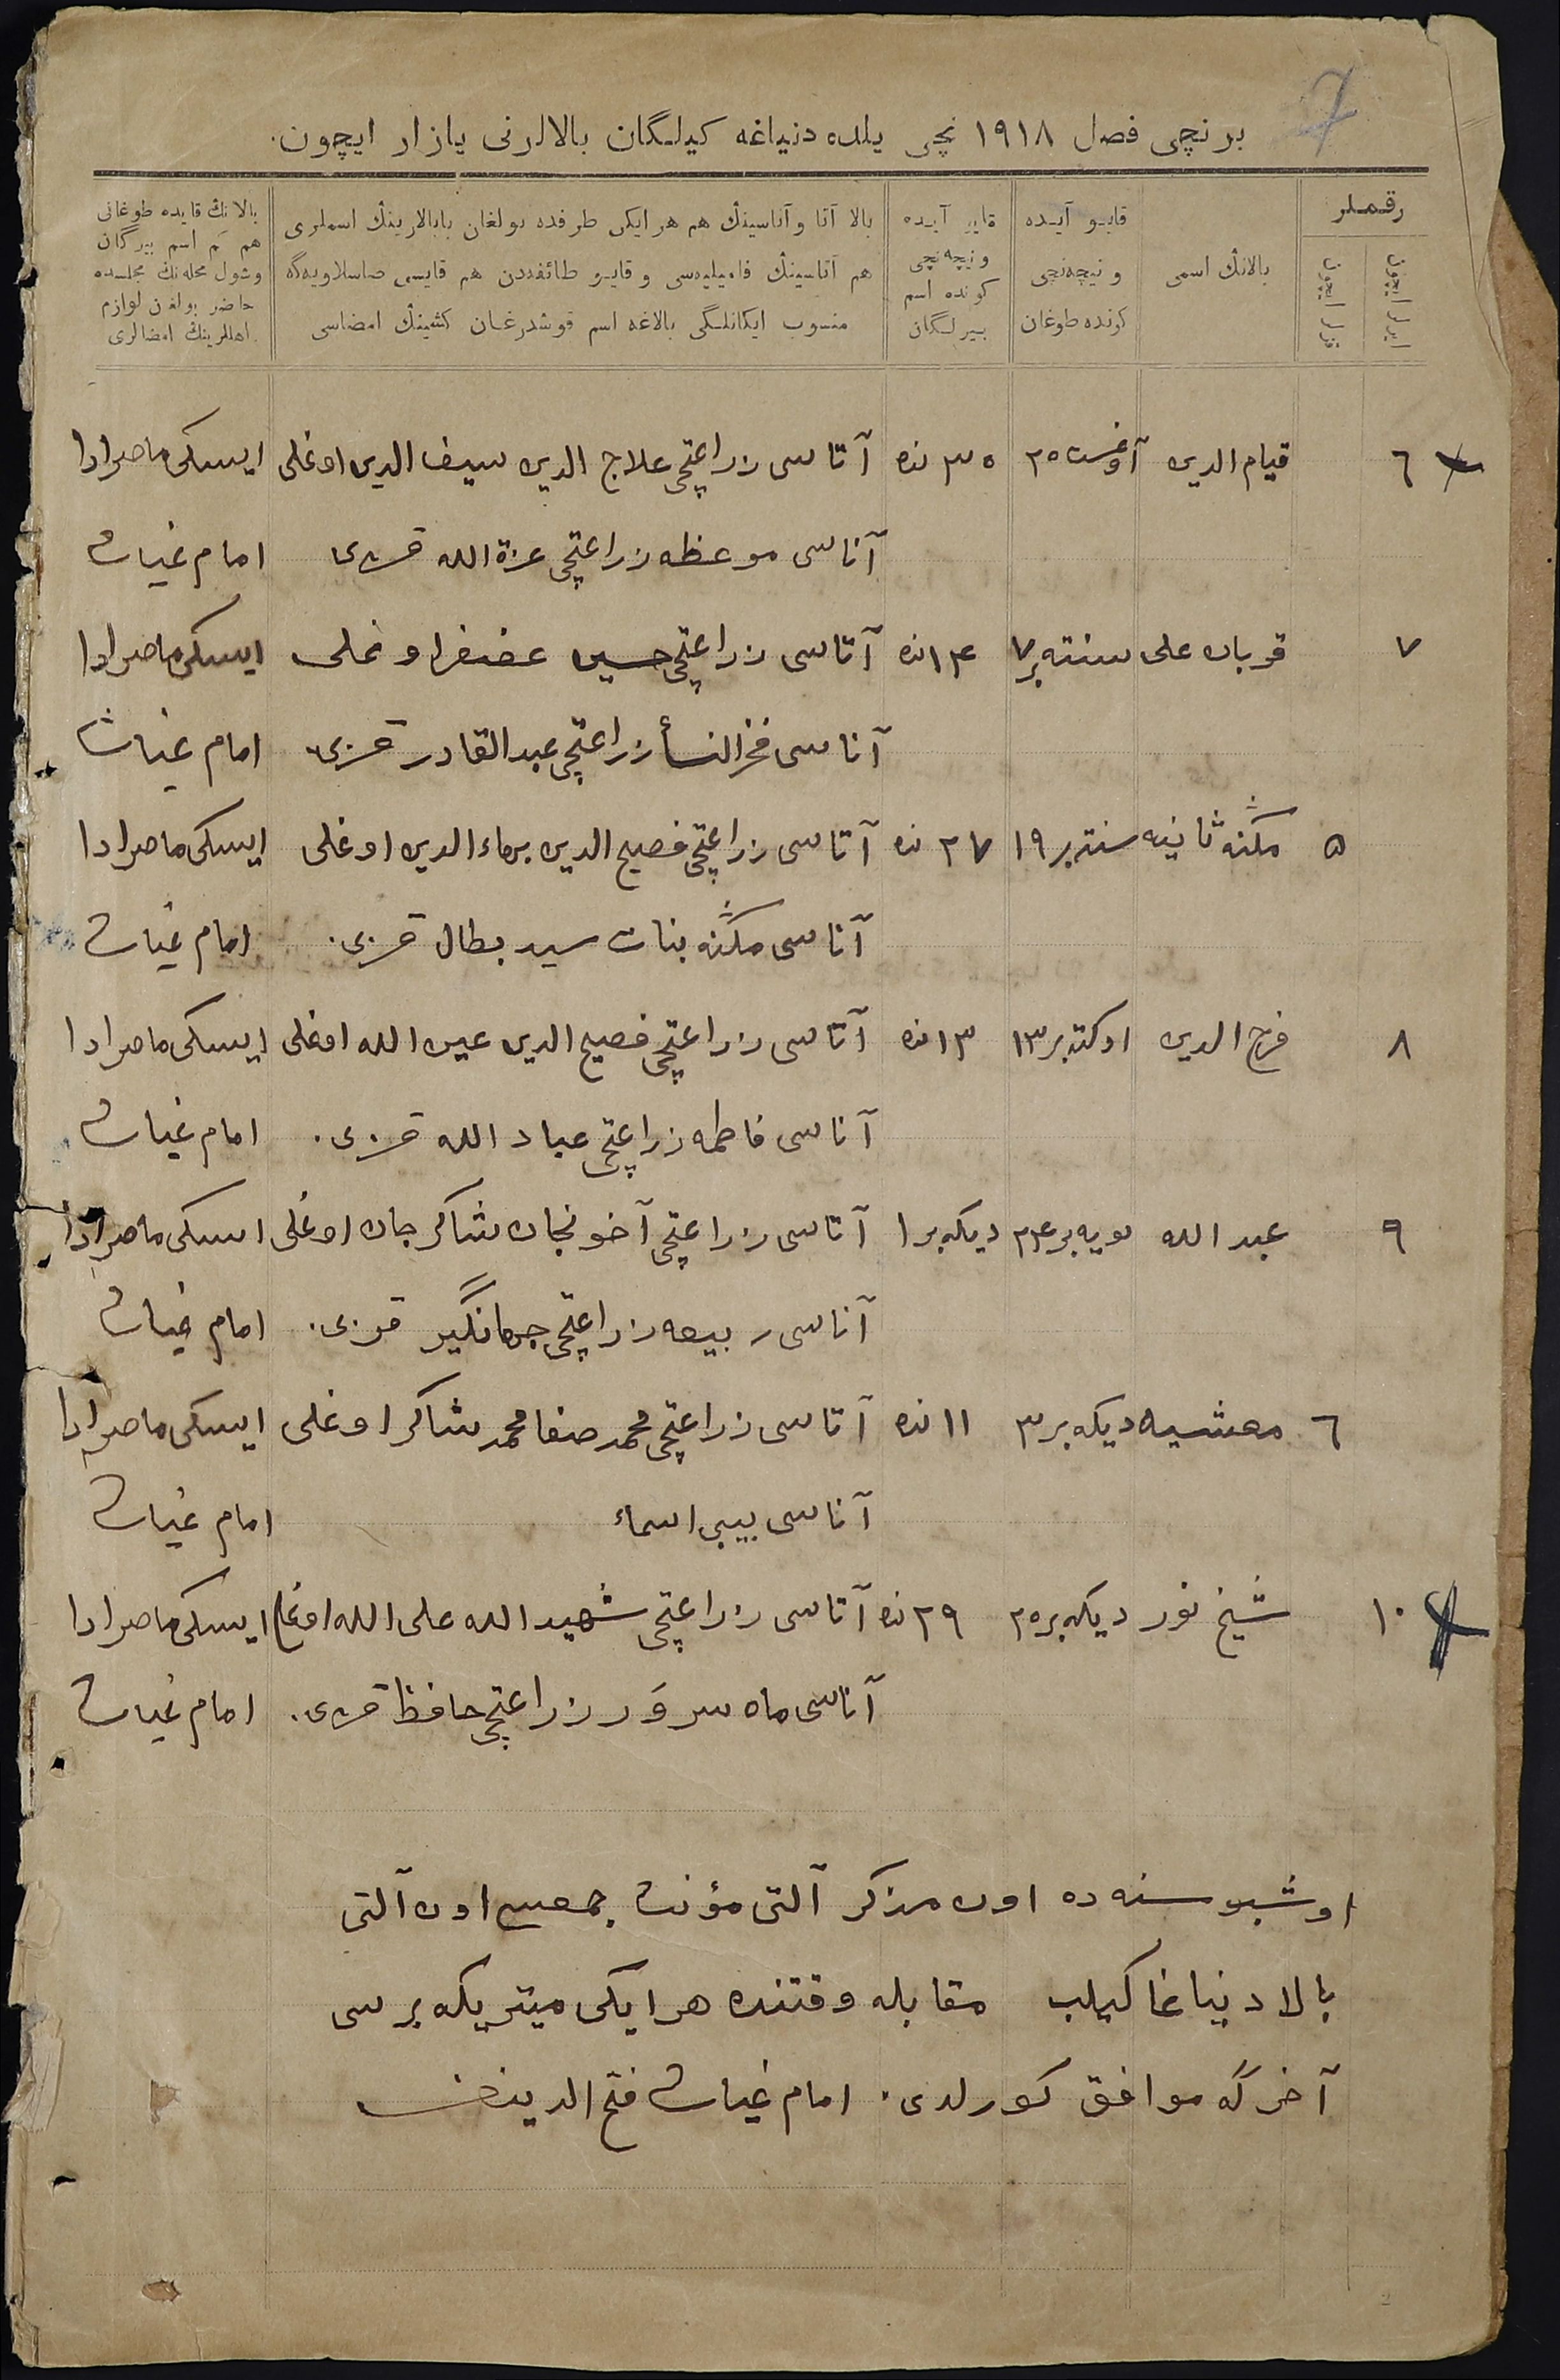 برنچی فصل ١٩١٨ نچی یلده دنیاغه کیلگان بالالرنی یازار ایچون.
رقملر
ایرلر ایچون
قزلر ایچون
بالانڭ اسمی
قایو آیده
و نیچه‌نچی
کونده طوغان
قایو آیده
و نیچه‌نچی
کونده اسم
بیرلگان
بالا آتا و آناسینڭ هم هر ایکی طرفده بولغان بابالارینڭ اسملری
هم آتاسینڭ فامیلیه‌سی و قایو طائفه‌دن هم قایسی صاسلاویه‌گه
منسوب ایکانلگی بالاغه اسم قوشدرغان کشینڭ امضاسی
بالانڭ قایده طوغانی
هم کم اسم بیرگان
و شول محله‌نڭ مجلسده
حاضر بولغن لوازم
اهللرینڭ امضالری
٦ قیام الدین آوغست ٢٥ ٣٠ نده آتاسی زراعتچی علاج الدین سیف الدین اوغلی ایسکی ماصرادا
آناسی موعظه زراعتچی عزة الله قزی امام غیاث
٧ قربان علی سنتەبر ٧ ١٤ نده آتاسی زراعتچی حسین غضنفر اوغلی ایسکی ماصرادا
آناسی فخرالنسأ زراعتچی عبد القادر قزی امام غیاث
٥ مکثه ثانیه سنتەبر ١٩ ٢٧ نده آتاسی زراعتچی فصیح الدین بهاء الدین اوغلی ایسکی ماصرادا
آناسی مکثه بنات سید بطال قزی. امام غیاث
٨ فرح الدین اوکتەبر ١٣ ١٣ نده آتاسی زراعتچی فصیح الدین عین الله اوغلی ایسکی ماصرادا
آناسی فاطمه زراعتچی عباد الله قزی. امام غیاث
٩ عبد الله نویه‌بر ٢٤ دیکه‌بر ١ آتاسی زراعتچی آخونجان شاکرجان اوغلی ایسکی ماصرادا
آناسی ربیعه زراعتچی جهانگیر قزی. امام غیاث
٦ معشیه دیکه‌بر ٣ ١١ نده آتاسی زراعتچی محمد صفا محمد شاکر اوغلی ایسکی ماصرادا
آناسی بیبی اسماء امام غیاث
١٠ شیخ نور دیکه‌بر ٢٥ ٢٩ نده آتاسی زراعتچی شهید الله علی الله اوغلی ایسکی ماصرادا
آناسی ماه سرور زراعتچی حافظ قزی. امام غیاث
اوشبو سنه ده اون مذکر آلتی مؤنث جمعسی اون آلتی
بالا دنیاغا کیلب مقابله وقتنده هر ایکی میتریکه برسی
آخرگه موافق کورلدی. امام غیاث فتح الدینف